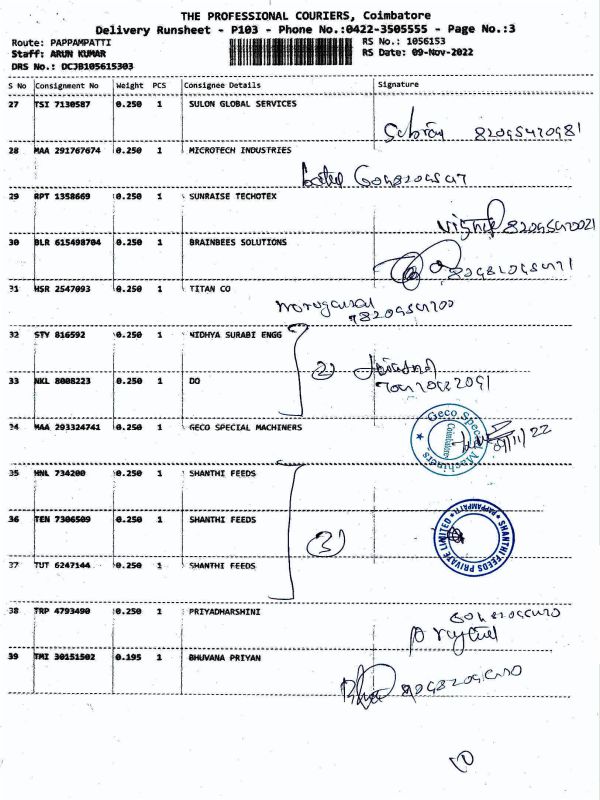 THE PROFESSIONAL COURIERS, Coimbatore
Delivery Runsheet - P103 - Phone No.:0422-3505555 - Page No.:3
Route: PAPPAMPATTI RS No.: 1056153
Staff: ARUN KUMAR RS Date: 09-Nov-2022
DRS No.: DCJB105615303
S No Consignment No Weight PCS Consignee Details Signature
27 TSI 7130587 0.250 1 SULON GLOBAL SERVICES
28 MAA 291767674 0.250 1 MICROTECH INDUSTRIES
29 RPT 1358669 0.250 1 SUNRAISE TECHOTEX
30 BLR 615498704 0.250 1 BRAINBEES SOLUTIONS
31 HSR 2547093 0.250 1 TITAN CO
32 STY 816592 0.250 1 NIDHYA SURABI ENGG
2)
33 NKL 8008223 0.250 1 DO
34 MAA 293324741 0.250 1 GECO SPECIAL MACHINERS
Geco Special Machiners
Coimbatore
09/11/22
35 HNL 734200 0.250 1 SHANTHI FEEDS
36 TEN 7306509 0.250 1 SHANTHI FEEDS
(3)
SHANTHI FEEDS PRIVATE LIMITED
PAPPAMPATTI
37 TUT 6247144 0.250 1 SHANTHI FEEDS
38 TRP 4793490 0.250 1 PRIYADHARSHINI
39 TMI 30151502 0.195 1 BHUVANA PRIYAN